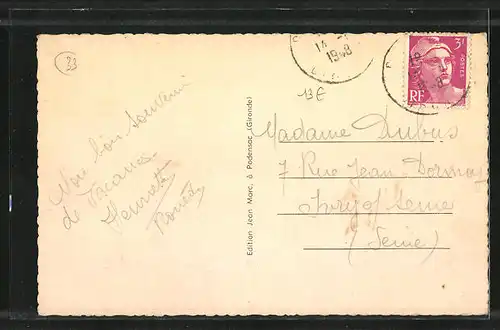 33
14
1948
13€
3F
POSTES
RF
Mon bon souvenir
de Vacances
Henriette
Madame Dubus
7 Rue Jean Dormoy
Ivry s/ Seine
(Seine)
Edition Jean Marc, à Podensac (Gironde)